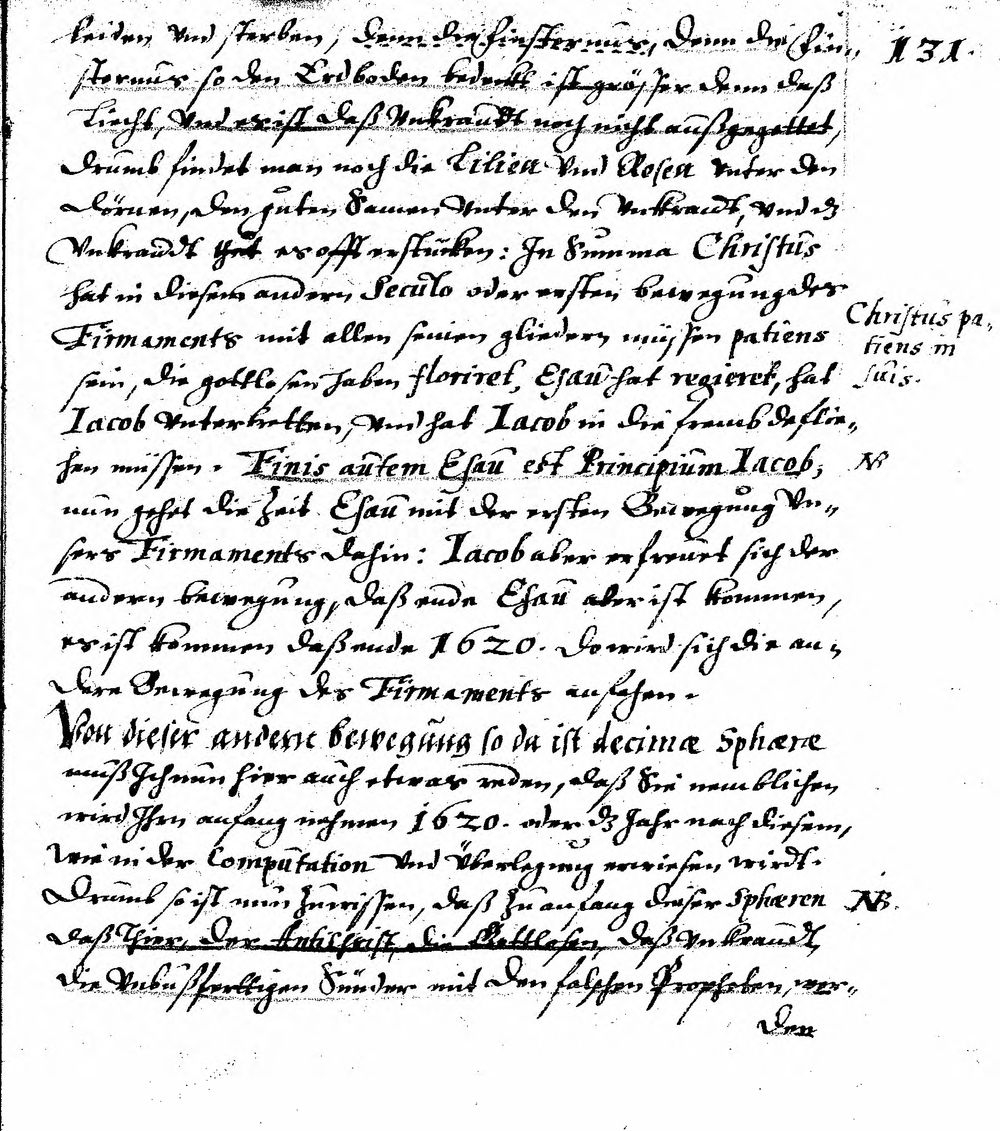 leiden vnd sterben, denn die finsternus, denn die Fin- 131.
sternus so den Erdboden bedeckt ist grösser denn daß
Liecht, vnd es ist daß vnkraudt noch nicht außgegettet,
drumb findet man noch die Lilien vnd Rosen vnter den
dörnen, den guten Samen vnter den vnkraudt, vnd dz
Vnkraudt thut es offt erstücken: In Summa Christus
hat in diesem andern Seculo oder ersten bewegung des
Firmaments mit allen seinen gliedern müssen patiens
Christus pa-
tiens in
suis.
sein, die gottlosen haben floriret, Esau hat regieret, hat
Iacob vntertretten, vnd hat Iacob in die frembde flie-
hen müssen. Finis autem Esau est Principium Iacob; NB
nun gehet die Zeit Esau mit der ersten Bewegung vn-
sers Firmaments dahin: Iacob aber erfreuet sich der
andern bewegung, daß ende Esau aber ist kommen,
es ist kommen daß ende 1620. do wird sich die an-
dere Bewegung des Firmaments anfahen.
Von dieser andern bewegung so da ist decimæ Sphæræ
muß Ich nun hier auch etwas reden, daß Sie nemblichen
wird Ihrn anfang nehmen 1620. oder dz Jahr nach diesem,
wie in der Computation vnd Überlegung erwiesen wirdt.
Drumb so ist nun zuwissen, daß zu anfang dieser Sphæren NB.
daß Thier, der Antichrist, die Gottlosen, daß vnkraudt,
die vnbußferttigen Sünder mit den falschen Propheten, wer-
den